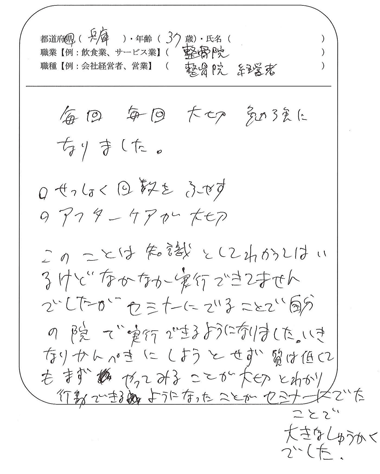 都道府県( 兵庫 )・年齢( 37 歳)・氏名( )
職業【例：飲食業、サービス業】( 整骨院 )
職種【例：会社経営者、営業】( 整骨院 経営者 )
毎回 毎回 大切 勉強に
なりました。
□せっしょく回数を ふやす
□アフターケアが大切
このことは知識としてわかってはい
るけどなかなか実行できてません
でしたが セミナーにでることで自分
の院で実行できるようになりました。いき
なりかんぺきにしようとせず 質は低くて
もまず やってみることが大切とわかり
行動できる ようになったことが セミナーにでた
ことで
大きなしゅうかく
でした。